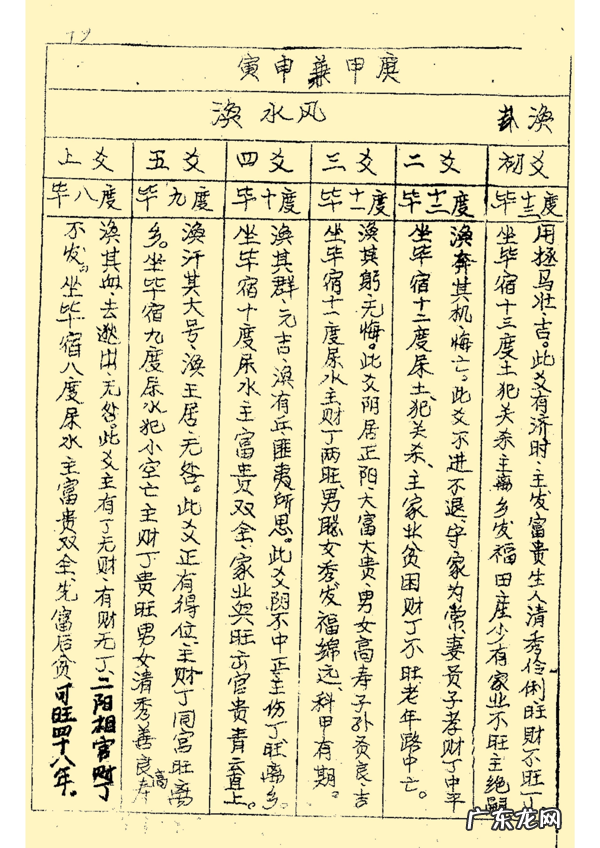 寅申兼甲庚
涣水风
涣卦
初爻
毕十三度
用拯马壮、吉。此爻有济时、主发富贵生人清秀伶俐、旺财不旺丁
坐毕宿十三度土犯关杀主离乡发福田产少有家业不旺主绝嗣
二爻
毕十二度
涣奔其机、悔亡。此爻不进不退、守家为常、妻贤子孝财丁中平
坐毕宿十二度尿土、犯关杀、主家业贫困财丁不旺老年路中亡。
三爻
毕十一度
涣其躬、无悔。此爻阴居正阳、大富大贵、男女高寿子孙贤良、吉
坐毕宿十一度尿水主财丁两旺、男聪女秀发福绵远、科甲有期。
四爻
毕十度
涣其群、元吉、涣有丘、匪夷所思。此爻阴不中正主伤丁旺离乡。
坐毕宿十度尿水主富贵双全、家业兴旺出官贵青云直上。
五爻
毕九度
涣汗其大号、涣王居、无咎。此爻正有得位、主财丁同宫旺离
乡。坐毕宿九度尿水犯小空亡主财丁贵旺男女清秀善良高寿
上爻
毕八度
涣其血、去逖出无咎。此爻主有丁无财、有财无丁、二阳相害财丁
不发。坐毕宿八度尿水主富贵双全、先富后贫、可旺四十八年.
广东龙网